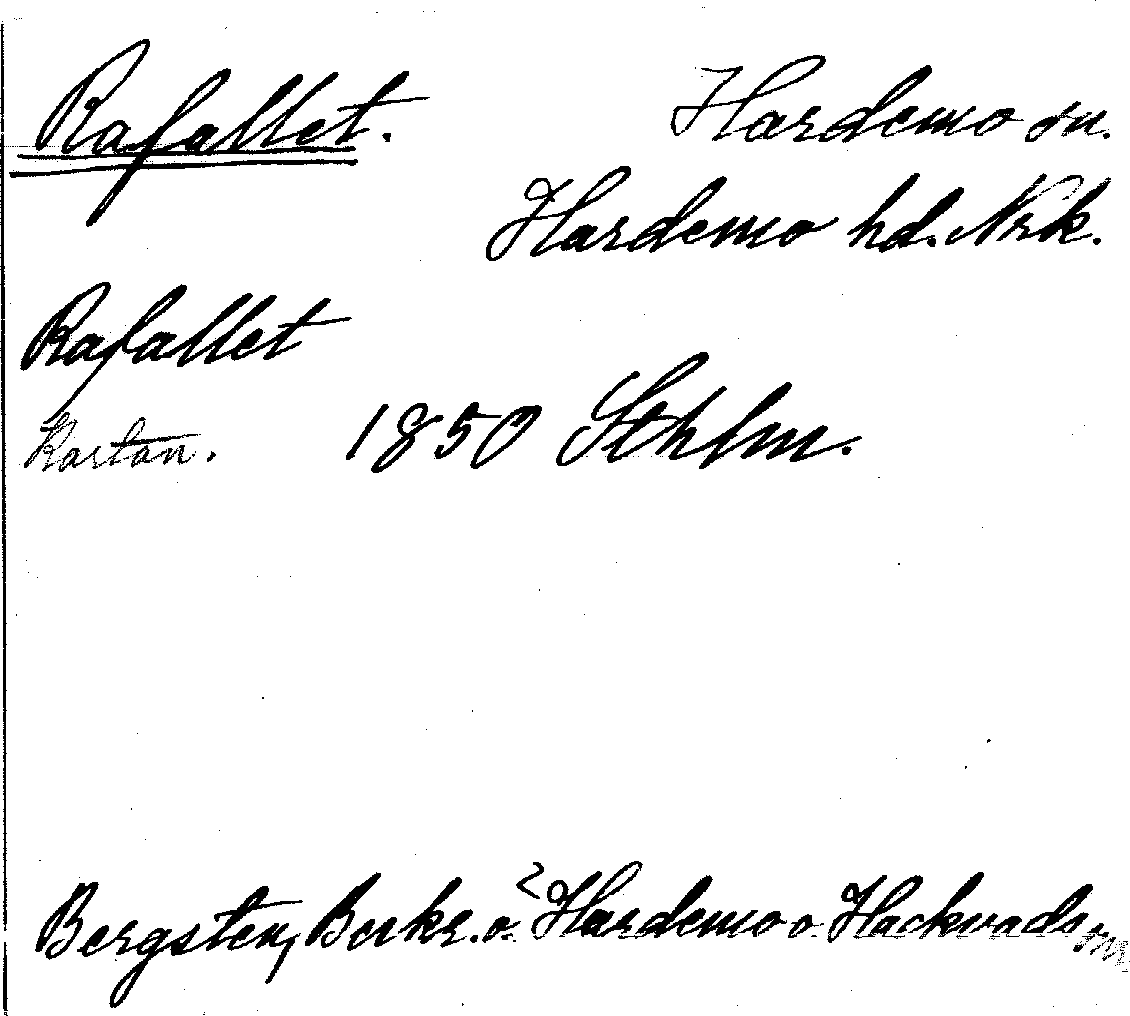 Rafallet.
Hardemo sn.
Hardemo hd. Nrk.
Rafallet
Kartan. 1850 Sthlm.
Bergsten, Beskr. ö. Hardemo o. Hackvads snr